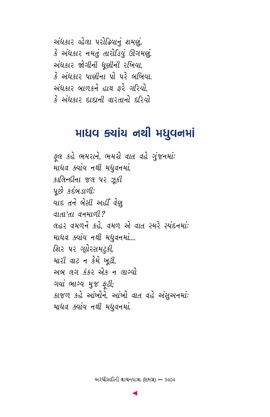 અંધકાર વ્હેલા પરોઢિયાનું શમણું,
કે અંધકાર નમતું તારોડિયું ઊગમણું,
અંધકાર જોગીની ધૂણીની રખિયા,
કે અંધકાર પાણીના પો પરે બખિયા.
અંધકાર બાળકને હાથ ફરે ગરિયો,
કે અંધકાર દાદાની વારતાનો દરિયો
માધવ ક્યાંય નથી મધુવનમાં
ફૂલ કહે ભમરાને, ભમરો વાત વહે ગુંજનમાં:
માધવ ક્યાંય નથી મધુવનમાં.
કાલિન્દીના જલ પર ઝૂકી
પૂછે કદંબડાળી:
યાદ તને બેસી અહીં વેણુ
વાતા'તા વનમાળી?
લહર વમળને કહે, વમળ એ વાત સ્મરે સ્પંદનમાં:
માધવ ક્યાંય નથી મધુવનમાં...
શિર પર ગોરસમટુકી,
મારી વાટ ન કેમે ખૂટી,
અબ લગ કંકર એક ન લાગ્યો
ગયાં ભાગ્ય મુજ ફૂટી;
કાજળ કહે આંખોને, આંખો વાત વહે અંસુઅનમાં:
માધવ ક્યાંય નથી મધુવનમાં.